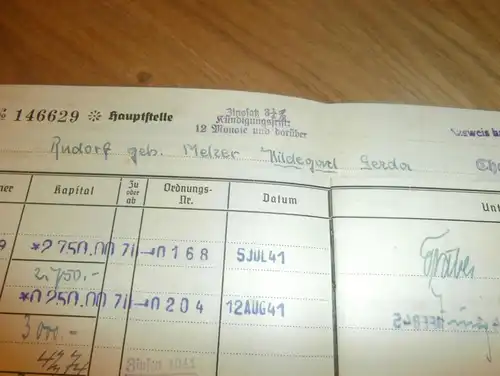 № 146629 ❊ Hauptstelle
Zinssatz 3½%
Kündigungsfrist:
12 Monate und darüber
Ausweis
Rudorf geb. Melzer Hildegard Gerda
ner Kapital Zu oder ab Ordnungs-Nr. Datum Unt
9 *2750.00 7ll 0168 5JUL41
2750.-
*0250.00 7ll 0204 12AUG41
3000.-
1941